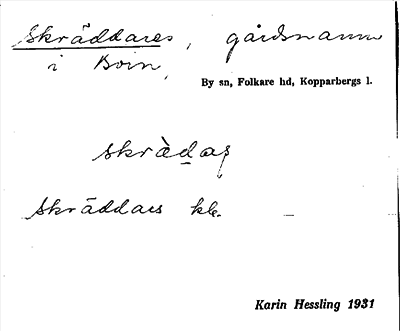 Skräddares, gårdsnamn
i Boin,
By sn, Folkare hd, Kopparbergs l.
Skräddars kb.
Karin Hessling 1931